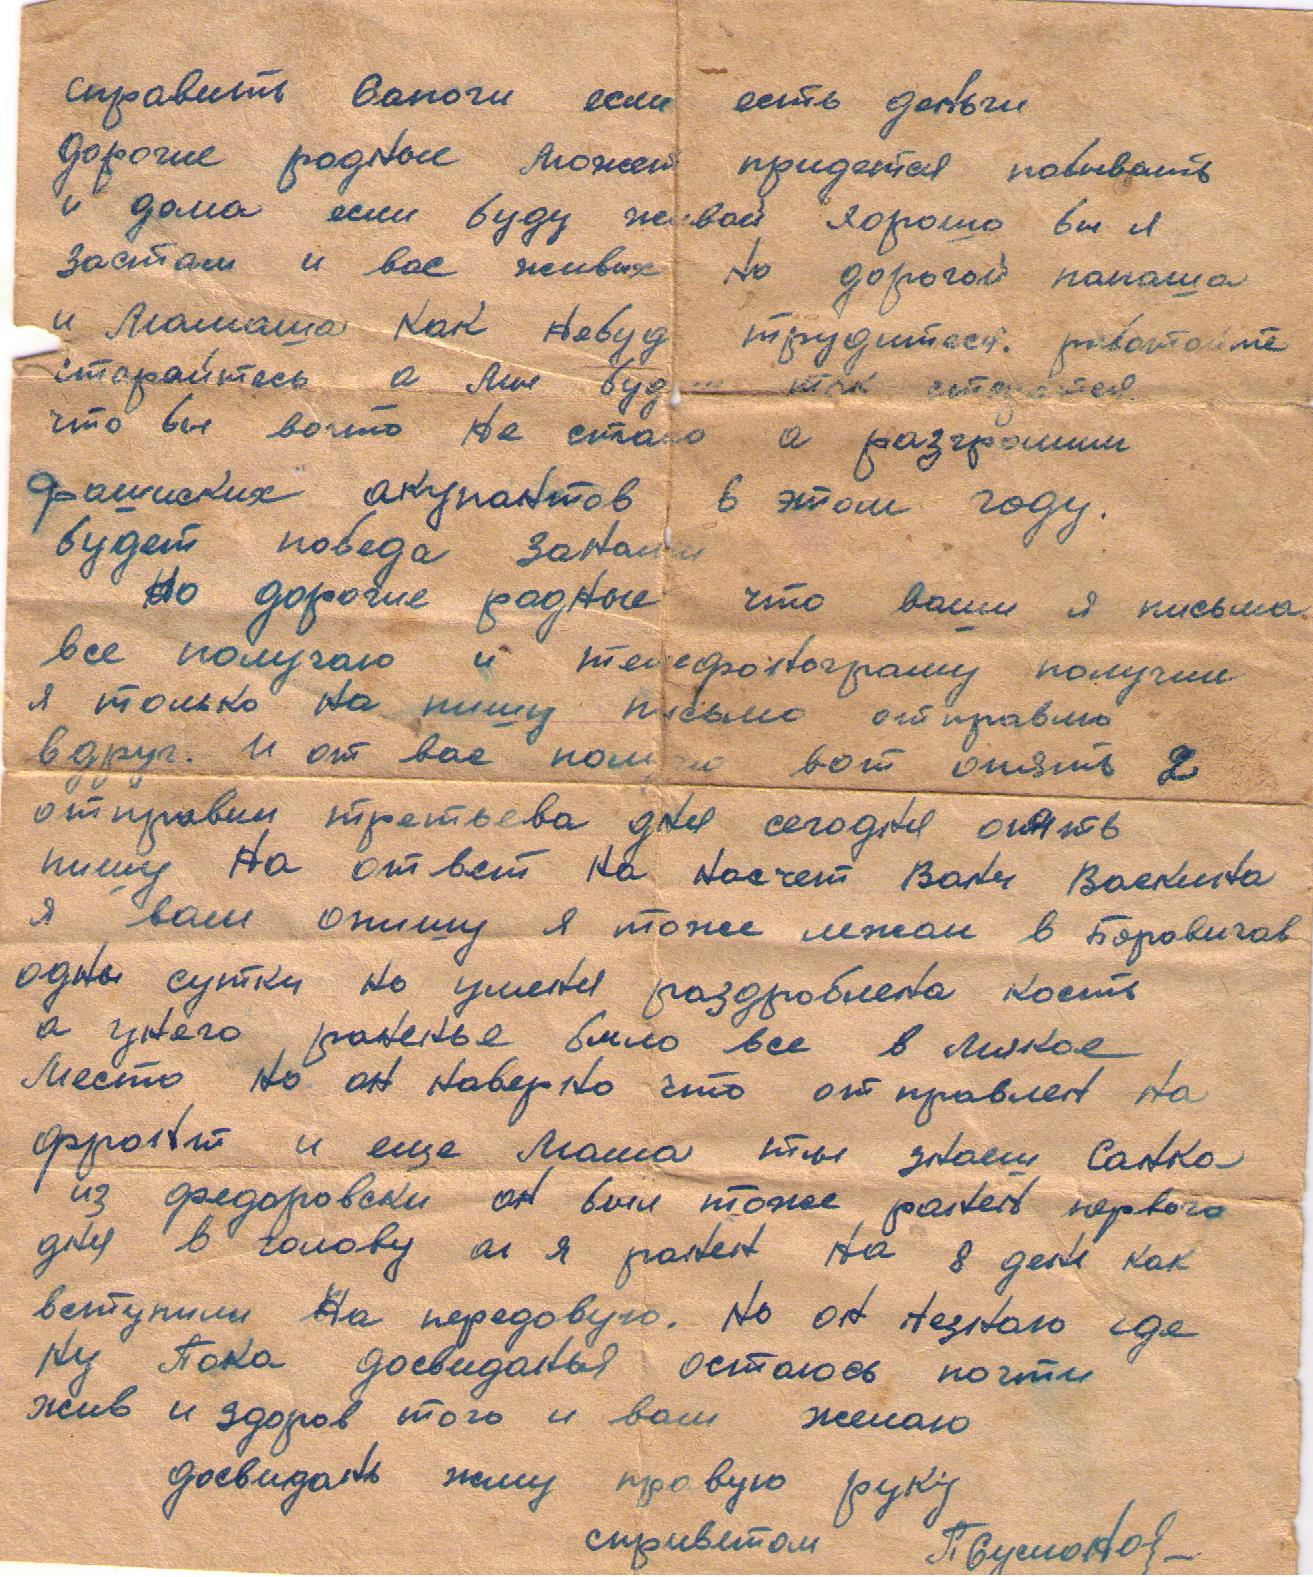 справить Сапоги если есть деньги
дорогие родные Может придется побывать
и дома если буду живой хорошо бы я
застал и вас живых но дорогой папаша
и Мамаша как небуд трудитеся. работайте
старайтесь а Мы буд так старатся
что бы вочто не стало а разгромим
фашиских акупантов в этом году.
будет победа занами
Но дорогие родные что ваши я письма
все получаю и телефонограму получил
я только на пишу письмо отправлю
вдруг. И от вас получаю вот опять 2
отправил третьева дня сегодня опять
пишу на ответ на насчет Вани Васкина
я вам опишу я тоже лежал в Боровичах
одны сутки но уменя раздроблена кость
а унего раненье было все в мякое
Место но он наверно что отправлен на
фронт и еще Маша ты знаеш Санка
из федоровски он был тоже ранен первого
дня в голову а я ранен на 8 день как
вступили на передовую. но он незнаю где
ну Пока досвиданья остаюсь почти
жив и здоров того и вам желаю
досвидань жму правую руку
сприветом П Суманов